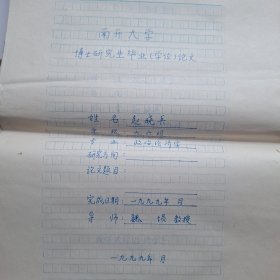 南开大学
博士研究生毕业(学位)论文
姓名 赵晓兵
专业 政治经济学
研究方向:
论文题目:
完成日期: 一九九九年 月
导师 魏埙 教授
一九九九年 月